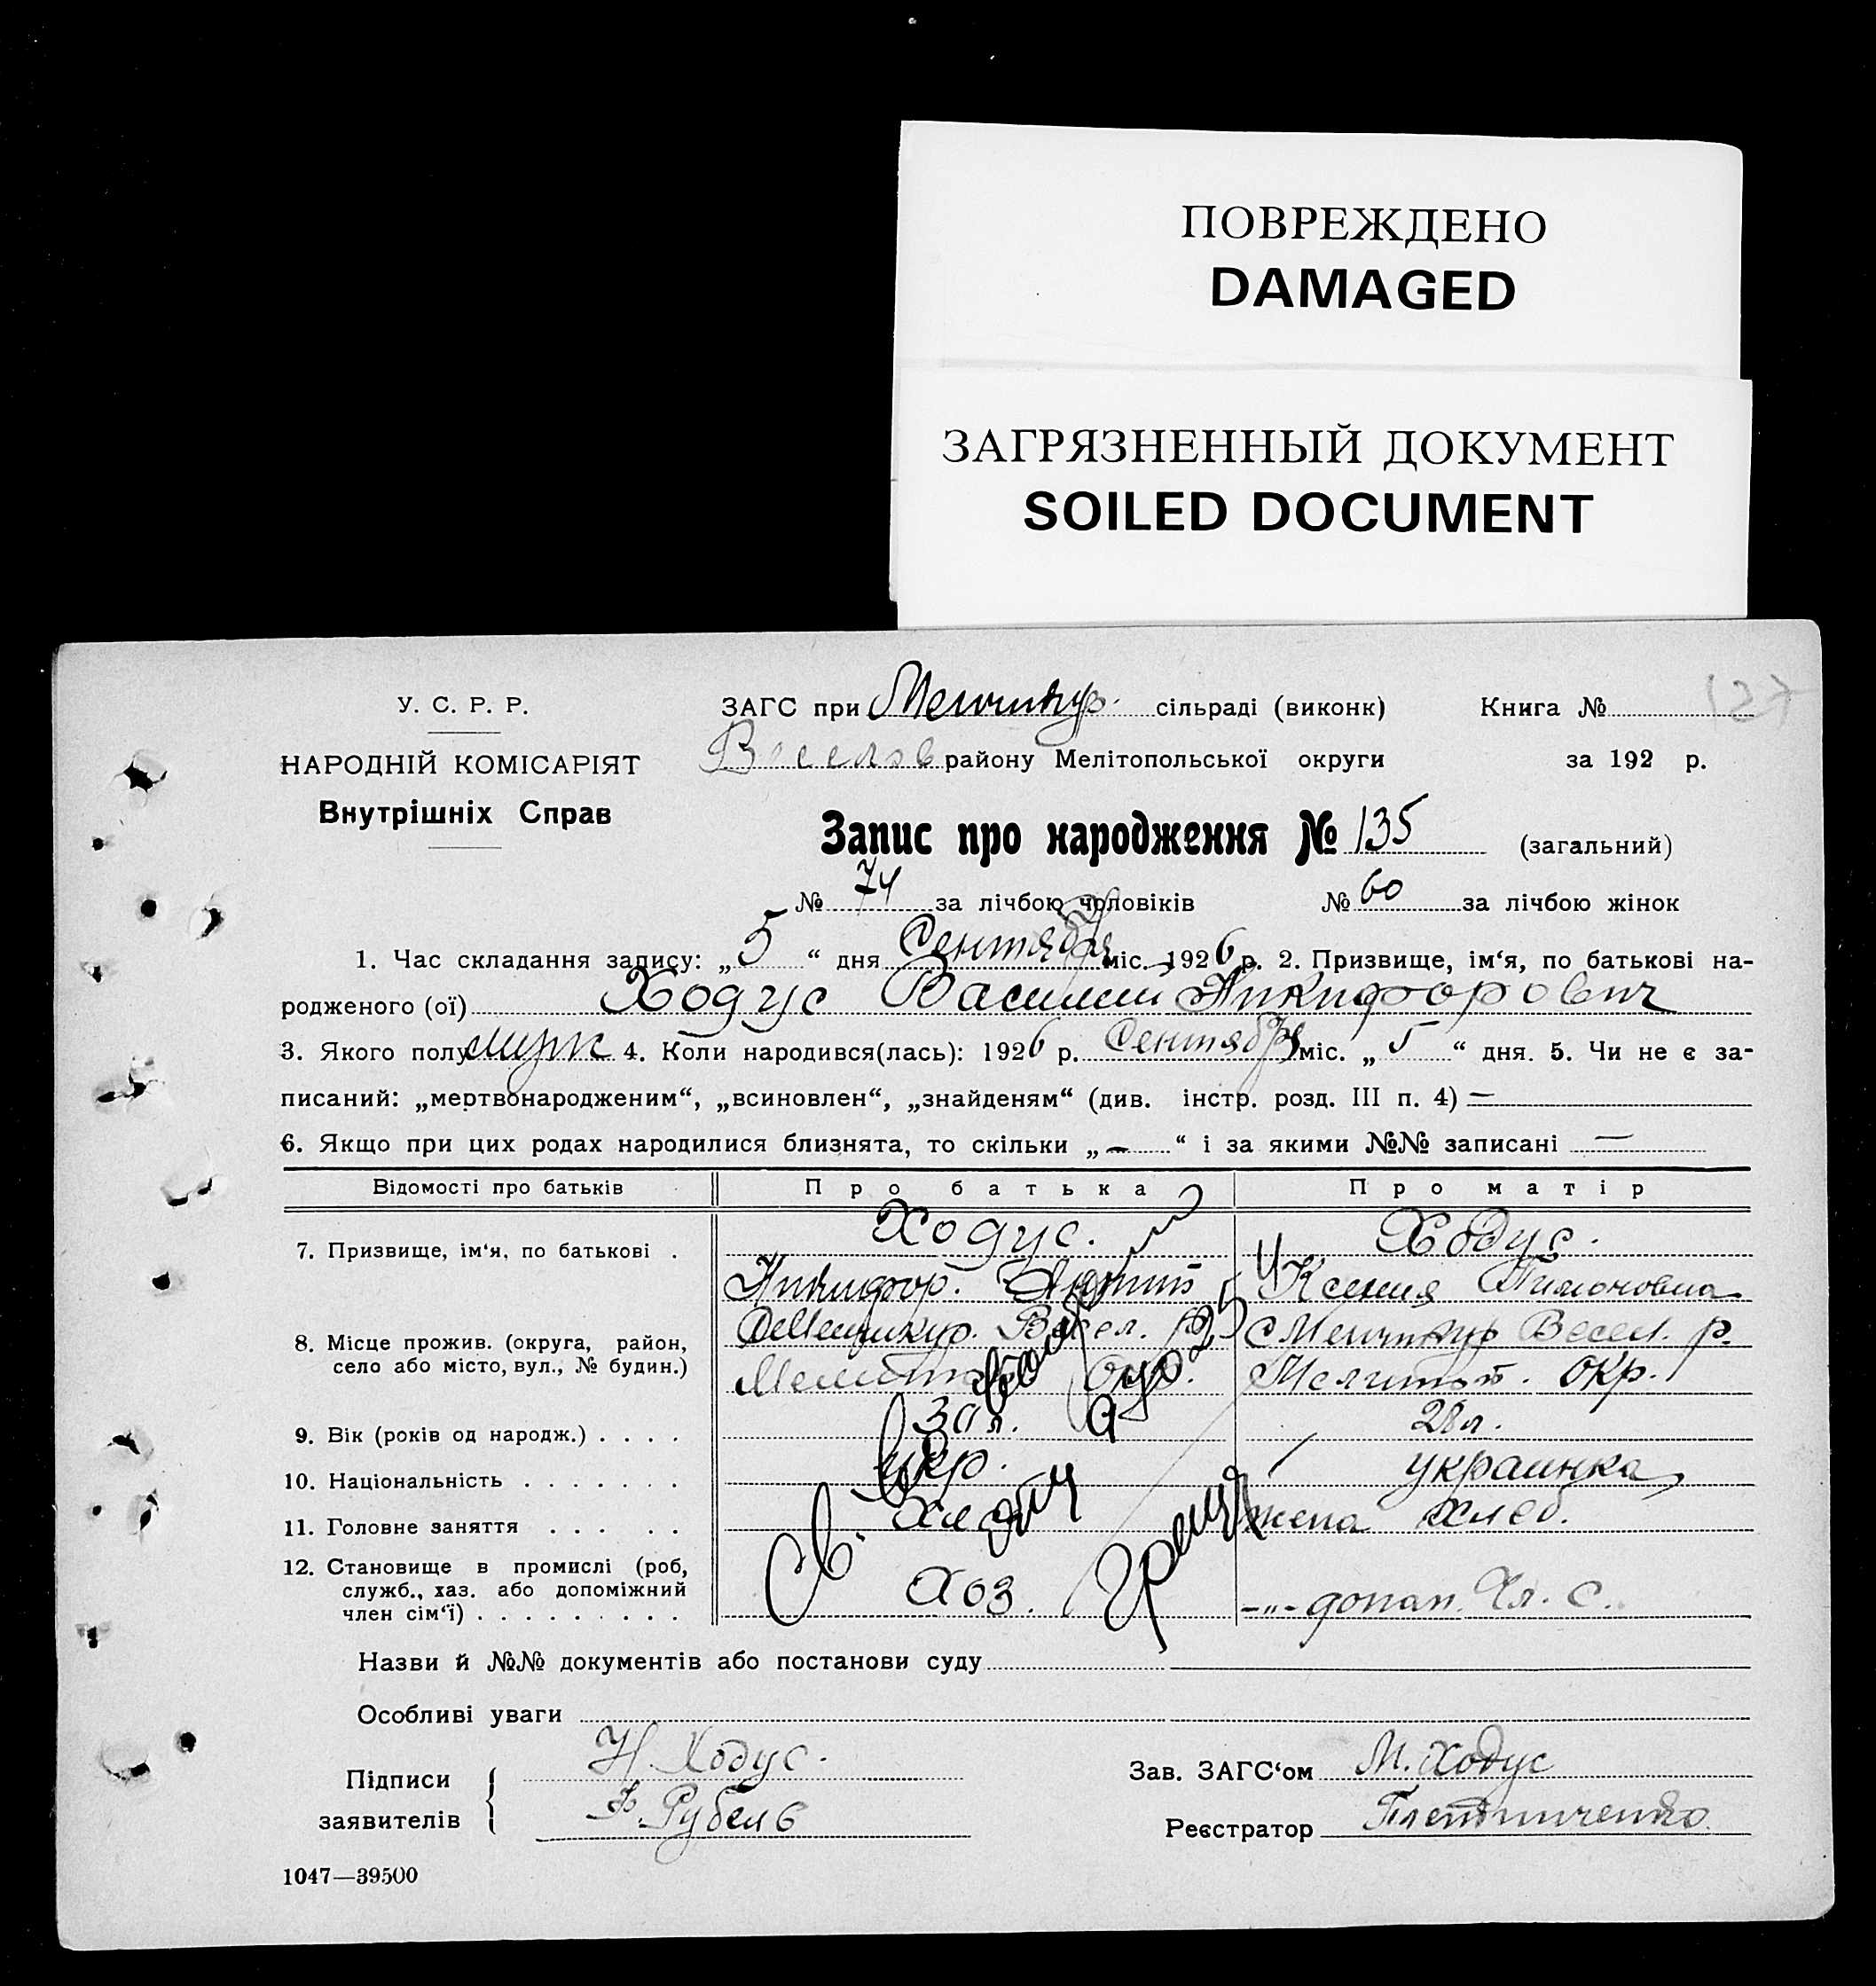 ПОВРЕЖДЕНО
DAMAGED
ЗАГРЯЗНЕННЫЙ ДОКУМЕНТ
SOILED DOCUMENT
У. С. Р. Р.
НАРОДНІЙ КОМІСАРІЯТ
Внутрішніх Справ
ЗАГС при сільраді (виконк) Книга № 127
Веселов району Мелітопольської округи за 192 р.
Запис про народження № 135 (загальний)
№ 74 за лічбою чоловіків № 60 за лічбою жінок
1. Час складання запису: „ 5 “ дня Сентября міс. 1926 р. 2. Призвище, ім‘я, по батькові на-
родженого (ої) Ходус Василий Никифорович
3. Якого полу муж 4. Коли народився(лась): 1926 р. Сентября міс. „ 5 “ дня. 5. Чи не є за-
писаний: „мертвонародженим“, „всиновлен“, „знайденям“ (див. інстр. розд. III п. 4) —
6. Якщо при цих родах народилися близнята, то скільки „ — “ і за якими №№ записані —
Відомості про батьків Про батька Про матір
7. Призвище, ім‘я, по батькові . Ходус. Ходус.
Никифор. Ксения Тимоновна
8. Місце прожив. (округа, район, Весел. р. Весел. р.
село або місто, вул., № будин.) Мелитоп. Окр. Мелитоп. окр.
9. Вік (років од народж.) . . . . 30 л. 28 л.
10. Національність . . . . . . . укр. украинка
11. Головне заняття . . . . . Хлеб жена хлеб.
12. Становище в промислі (роб,
служб., хаз. або допоміжний
член сім‘ї) . . . . . . . . . Хоз. -"- допом. Чл. С.
Св.
Назви й №№ документів або постанови суду
Особливі уваги
Підписи заявителів { Н. Ходус. Зав. ЗАГС‘ом М. Ходус
Рубель Реєстратор
1047—39500